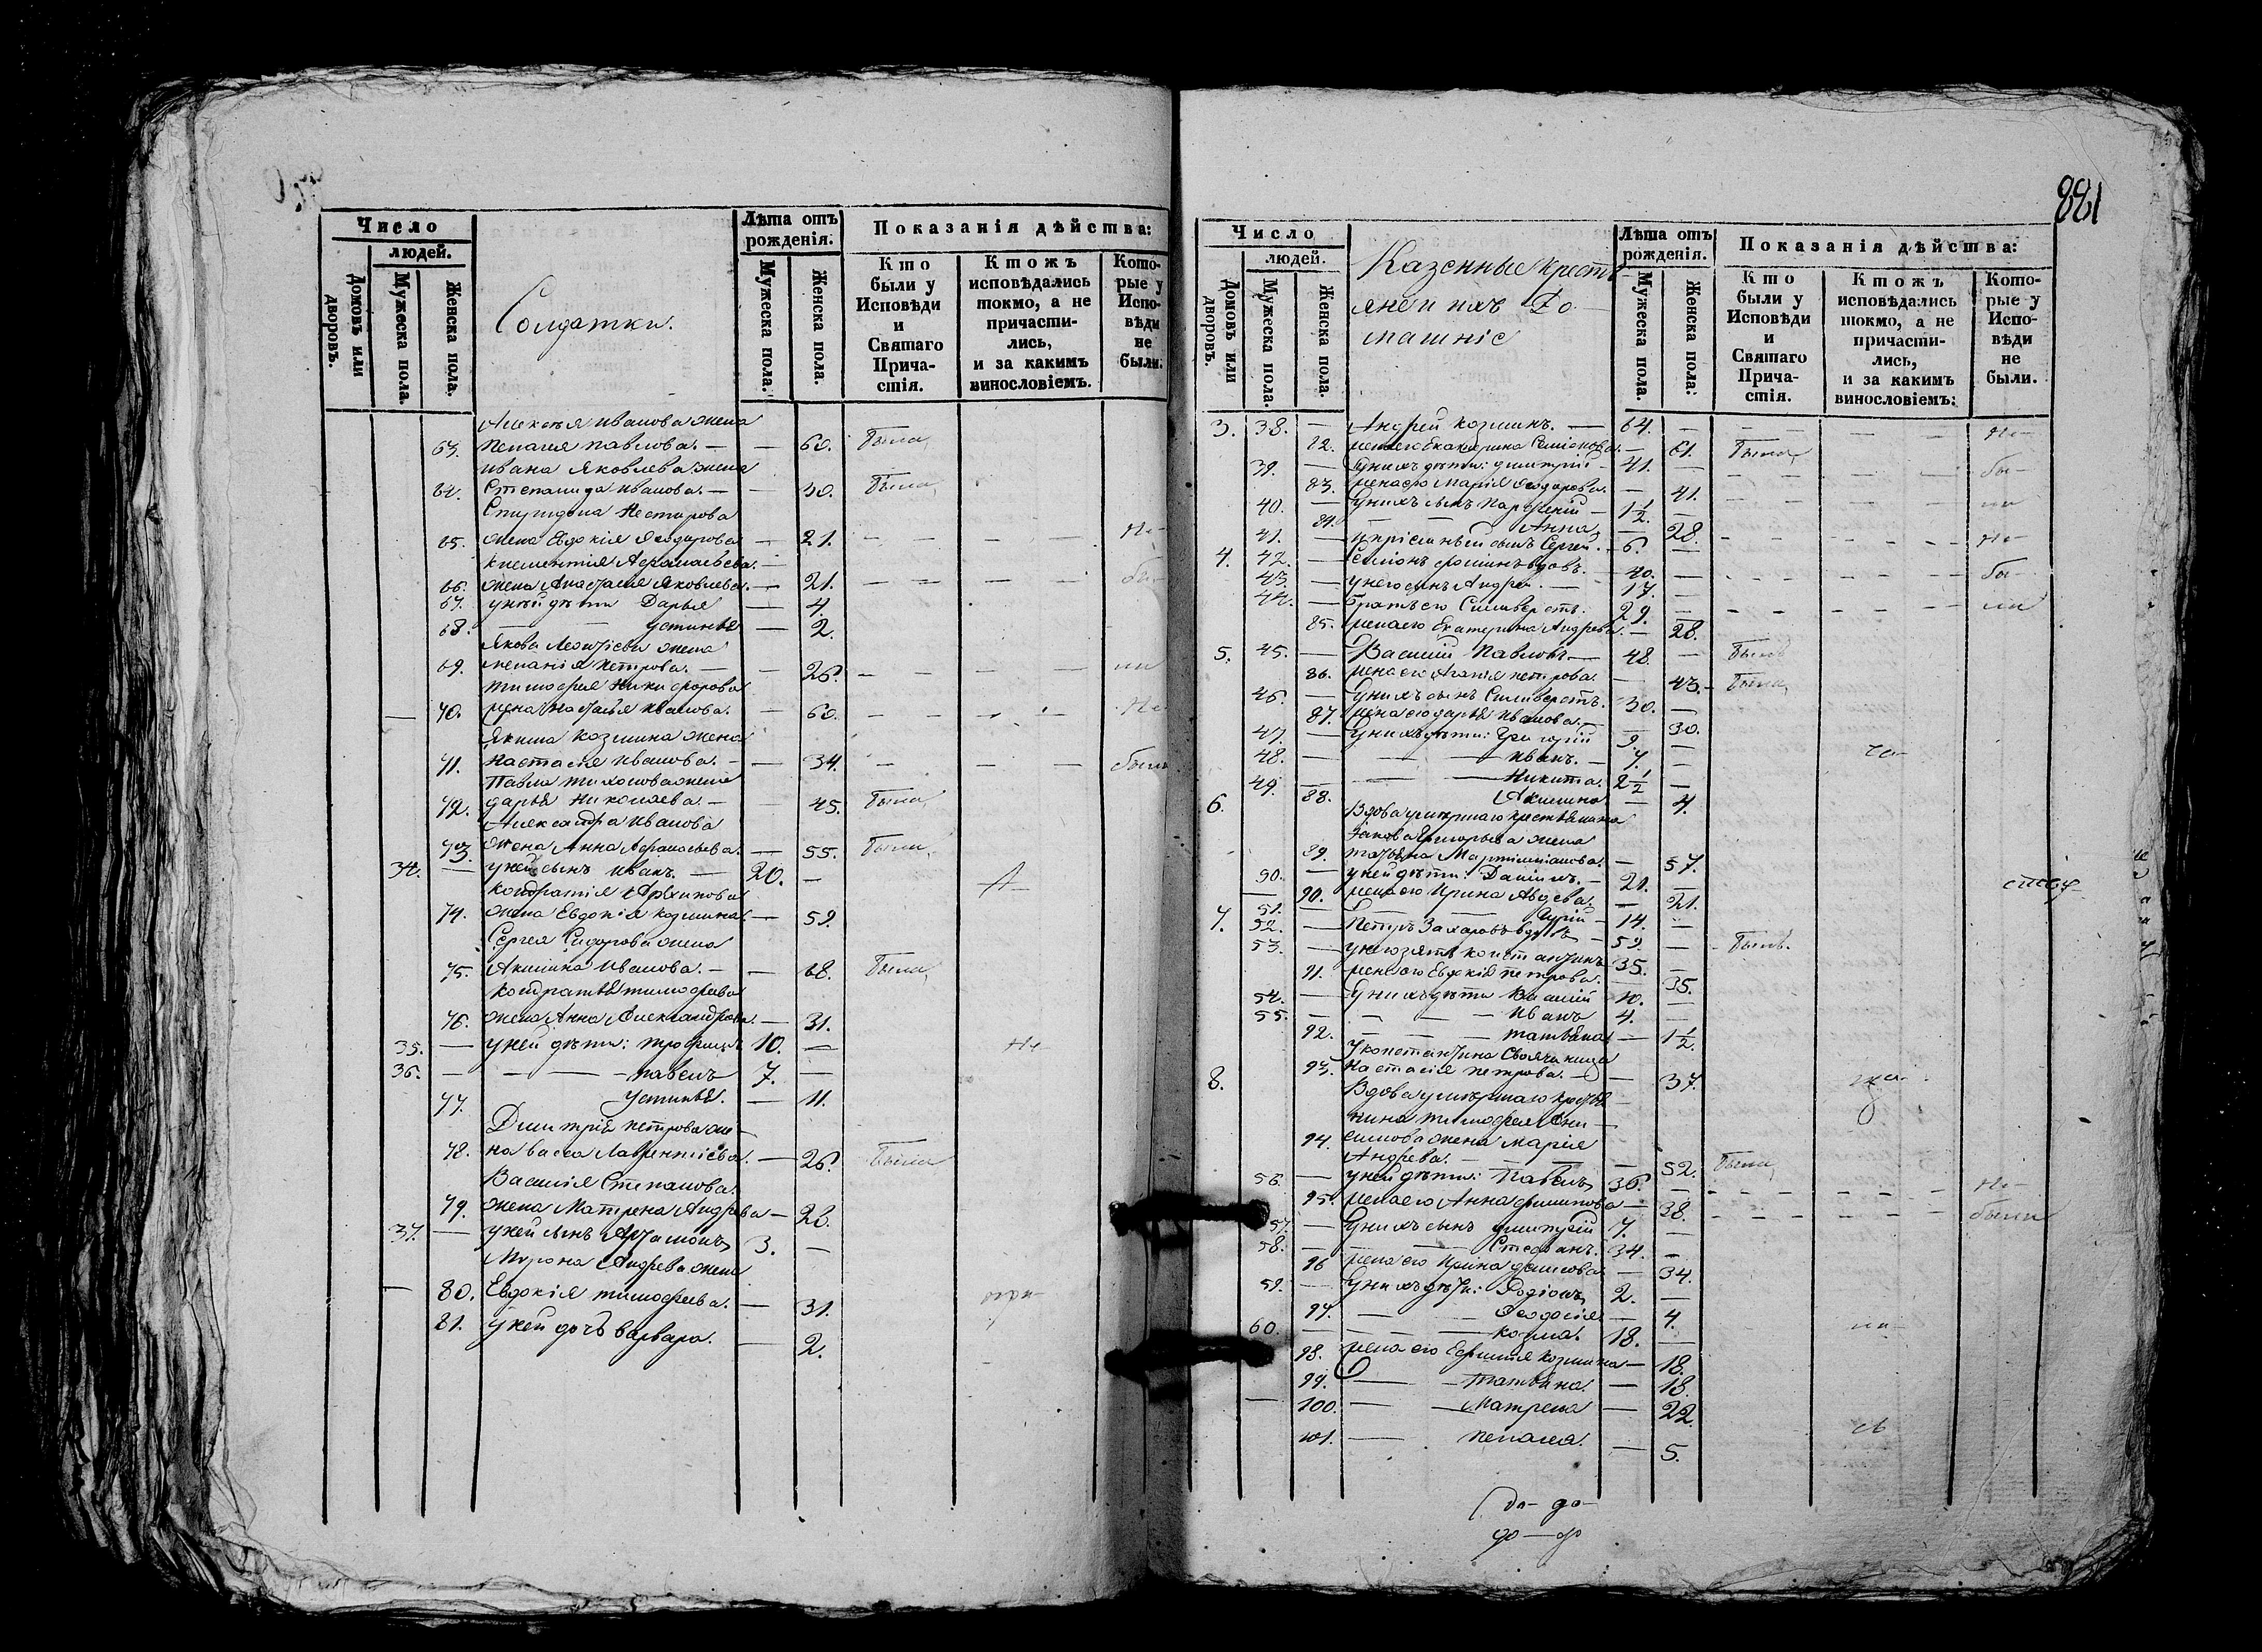 Число
людей.
Домовъ или дворовъ.
Мужеска пола.
Женска пола.
Солдатки.
Лѣта отъ рожденія.
Мужеска пола.
Женска пола.
Показанія дѣйства:
Кто были у Исповѣди и Святаго Причастія.
Ктожъ исповѣдались токмо, а не причастились, и за какимъ винословіемъ.
Которые у Исповѣди не были.
Алексѣя Иванова жена
63. Пелагея Павлова. — — 60. Была
Ивана Яковлева жена
64. Степанида Иванова. — — 30. Была
Спиридона Нестерова
65. жена Евдокія Ѳеодорова — 21. — — — — Не-
Климентія Аѳанасьева. —
66. жена Анастасія Яковлева. — 21. — — — — бы-
67. у ней дѣти Дарья — 4.
68. — — Устинья — 2.
Якова Леонтіева жена
69. Меланія Петрова. — — 26. — — — — ли
Тимофея Никифорова
— 70. жена Настасья Иванова. — 60. — — — — Не
Якима Козмина жена
71. Настасія Иванова. — — 34. — — — — были
Павла Тихонова жена
72. Дарья Николаева. — — 45. Была
Александра Иванова
73. жена Анна Аѳанасьева. — 55. Была
34. — у ней сынъ Иванъ. — 20. — А-
Кондратія Архипова
74. жена Евдокія Козмина — 59.
Сергея Сидорова жена
75. Акилина Иванова. — — 68. Была
Кондратья Тимофеева
76. жена Анна Александрова. — 31.
35. — у ней дѣти: Трофимъ 10. — Не-
36. — — — Павелъ 7. —
77. Устинья. — 11.
Димитрія Петрова же-
78. на Васса Лаврентіева. — 26. Была
Василія Степанова
79. жена Матрена Андрева — 28.
37. — у ней сынъ Артамонъ 3. —
Мирона Андрева жена
— 80. Евдокія Тимофеева. — 31.
81. у ней дочь Варвара. — 2.
881
Число
людей.
Домовъ или дворовъ.
Мужеска пола.
Женска пола.
Казенные кресть-
яне и ихъ До-
машніе
Лѣта отъ рожденія.
Мужеска пола.
Женска пола.
Показанія дѣйства:
Кто были у Исповѣди и Святаго Причастія.
Ктожъ исповѣдались токмо, а не причастились, и за какимъ винословіемъ:
Которые у Исповѣди не были.
3. 38. — Андрей Козминъ. — 64. — — — — — Не-
82. жена его Екатерина Симіонова. — 61. Была
39. — у нихъ дѣти: Димитрій — 41. — — — бы-
83. жена его Марія Ѳеодорова. — 41.
40. — у нихъ сынъ Парфеній — 1½. — ли
84. — — Анна — 28.
41. — сынъ Сергей. — 6. — Не-
4. 42. — Симіонъ вдовъ. 40. — бы-
43. — у него сынъ Андрей. — 17. —
44. — братъ его Сильверстъ. 29. — ли
85. жена его Екатерина Андрева. — 28.
5. 45. — Василій Павловъ — 48. — Былъ
86. жена его Агапія Петрова. — 43. — Была
46. — у нихъ сынъ Сильверстъ. 30. —
87. жена его Дарья Иванова. — 30.
47. — у нихъ дѣти: Григорій 9. —
48. — — — Иванъ. — 7. —
49. — — — Никита. 2½ —
88. Акилина — 4.
6. Вдова умершаго крестьянина
Якова Григорьева жена
89. Татьяна — 57.
50. — у ней дѣти: Даніилъ. — 21. —
90. жена его Ирина Авдева — 21.
51. — — Гурій — 14. —
7. 52. — Петръ Захаровъ вдовъ — 59. — Былъ.
53. — у него зять Константинъ 35. —
91. жена его Евдокія Петрова. — 35.
54. — у нихъ дѣти Василій 10. —
55. — — — Иванъ 4. —
92. — — Татьяна — 1½.
у Константина свояченица
93. Настасія Петрова. — — 37.
8. Вдова умершаго крестья-
нина Тимофея Они-
94. симова жена Марія
Андрева. — — — 52. Была
56. — у ней дѣти: Павелъ 36. — — — — Не-
95. жена его Анна Филипова — 38. — — — были
57. — у нихъ сынъ Димитрей 7. —
58. — — — Стефанъ. 34. —
96 жена его Ирина Данилова — 34.
59. — у нихъ дѣти: Родіонъ 2. —
97. — — Ѳеодосія — 4.
60. — — — Козма. 18. —
98. жена его Ефимія Козмина — 18.
99. — — Татьяна. — 18.
— 100. — — Матрена — 22.
101. — Пелагея. — 5.